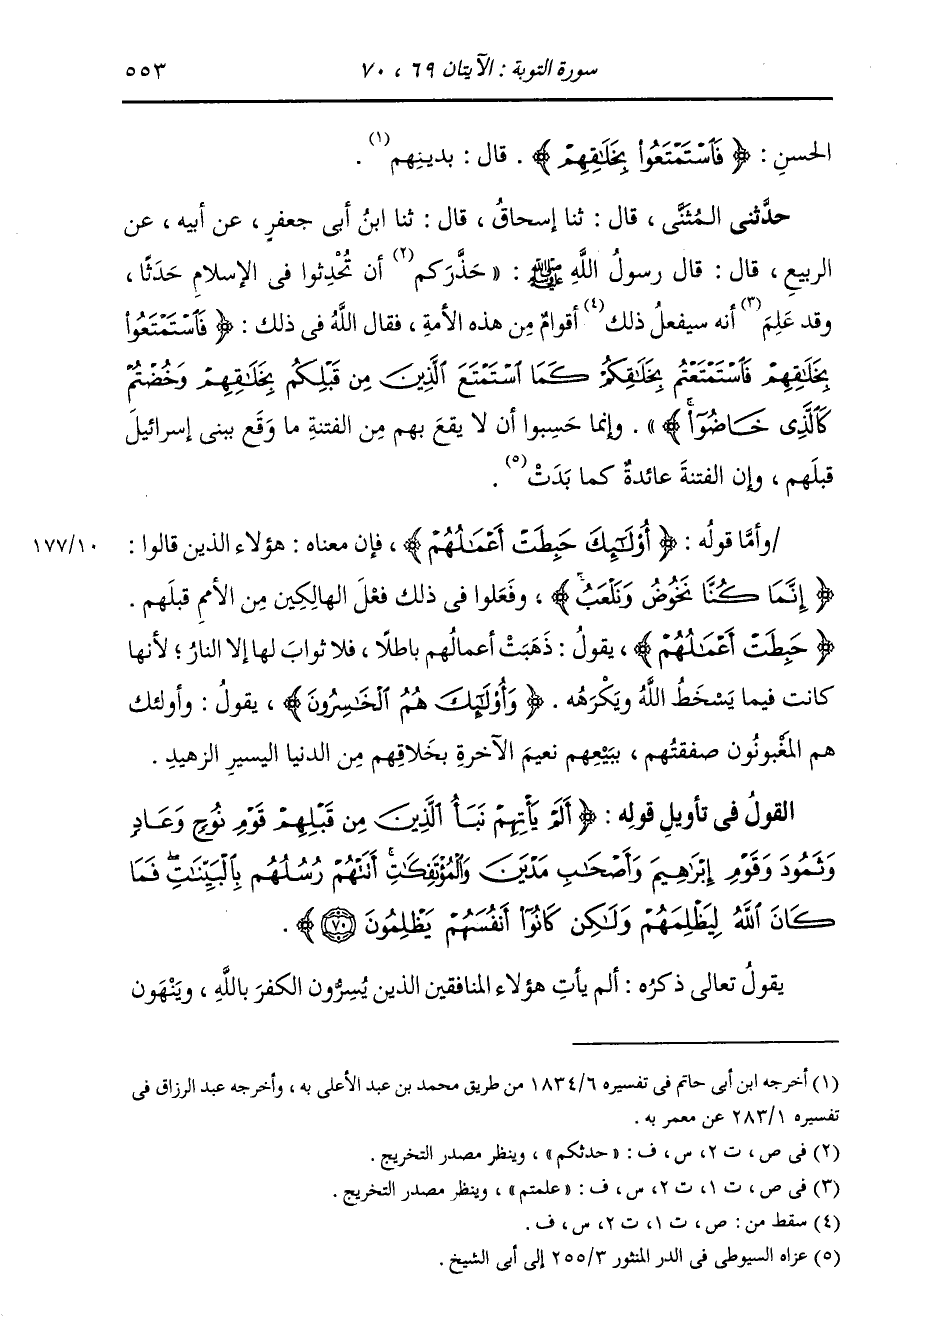 سورة التوبة : الآيتان ٦٩ ، ٧٠ ٥٥٣
الحسنِ : ﴿ فَاسْتَمْتَعُوا بِخَلَاقِهِمْ ﴾ . قال : بدينِهم(١) .
حدَّثنى المُثَنَّى ، قال : ثنا إسحاقُ ، قال : ثنا ابنُ أبى جعفرٍ ، عن أبيه ، عن
الربيعِ ، قال : قال رسولُ اللَّهِ ﷺ : « حَذَّرَكم(٢) أن تُحْدِثوا فى الإسلامِ حَدَثًا ،
وقد عَلِمَ(٣) أنه سيفعلُ ذلك(٤) أقوامٌ مِن هذه الأمةِ ، فقال اللَّهُ فى ذلك : ﴿ فَاسْتَمْتَعُوا
بِخَلَاقِهِمْ فَاسْتَمْتَعْتُم بِخَلَاقِكُمْ كَمَا اسْتَمْتَعَ الَّذِينَ مِن قَبْلِكُم بِخَلَاقِهِمْ وَخُضْتُمْ
كَالَّذِى خَاضُوٓا۟ۚ ﴾ » . وإنما حَسِبوا أن لا يقعَ بهم مِن الفتنةِ ما وَقَع ببنى إسرائيلَ
قبلَهم ، وإن الفتنةَ عائدةٌ كما بَدَتْ(٥) .
/وأمَّا قولُه : ﴿ أُوْلَٰٓئِكَ حَبِطَتْ أَعْمَٰلُهُمْ ﴾ ، فإن معناه : هؤلاء الذين قالوا : ١٧٧/١٠
﴿ إِنَّمَا كُنَّا نَخُوضُ وَنَلْعَبُۚ ﴾ ، وفَعَلوا فى ذلك فعْلَ الهالِكِين مِن الأممِ قبلَهم .
﴿ حَبِطَتْ أَعْمَٰلُهُمْ ﴾ ، يقولُ : ذَهَبَتْ أعمالُهم باطلًا ، فلا ثوابَ لها إلا النارُ ؛ لأنها
كانت فيما يَسْخَطُ اللَّهُ ويَكْرَهُه . ﴿ وَأُوْلَٰٓئِكَ هُمُ الْخَٰسِرُونَ ﴾ ، يقولُ : وأولئك
هم المَغْبونُون صفقتُهم ، ببَيْعِهم نعيمَ الآخرةِ بخَلاقِهم مِن الدنيا اليسيرِ الزهيدِ .
القولُ فى تأويلِ قولِه : ﴿ أَلَمْ يَأْتِهِمْ نَبَأُ الَّذِينَ مِن قَبْلِهِمْ قَوْمِ نُوحٍ وَعَادٍ
وَثَمُودَ وَقَوْمِ إِبْرَٰهِيمَ وَأَصْحَٰبِ مَدْيَنَ وَالْمُؤْتَفِكَٰتِۚ أَتَتْهُمْ رُسُلُهُم بِالْبَيِّنَٰتِۖ فَمَا
كَانَ اللَّهُ لِيَظْلِمَهُمْ وَلَٰكِن كَانُوٓا أَنفُسَهُمْ يَظْلِمُونَ ٧٠ ﴾ .
يقولُ تعالى ذكرُه : ألم يأتِ هؤلاء المنافقين الذين يُسِرُّون الكفرَ باللَّهِ ، ويَنْهَون
(١) أخرجه ابن أبى حاتم فى تفسيره ١٨٣٤/٦ من طريق محمد بن عبد الأعلى به ، وأخرجه عبد الرزاق فى
تفسيره ٢٨٣/١ عن معمر به .
(٢) فى ص ، ت ٢، س ، ف : « حدثكم » ، وينظر مصدر التخريج .
(٣) فى ص ، ت ١، ت ٢، س ، ف : « علمتم » ، وينظر مصدر التخريج .
(٤) سقط من : ص ، ت ١، ت ٢، س ، ف .
(٥) عزاه السيوطى فى الدر المنثور ٢٥٥/٣ إلى أبى الشيخ .